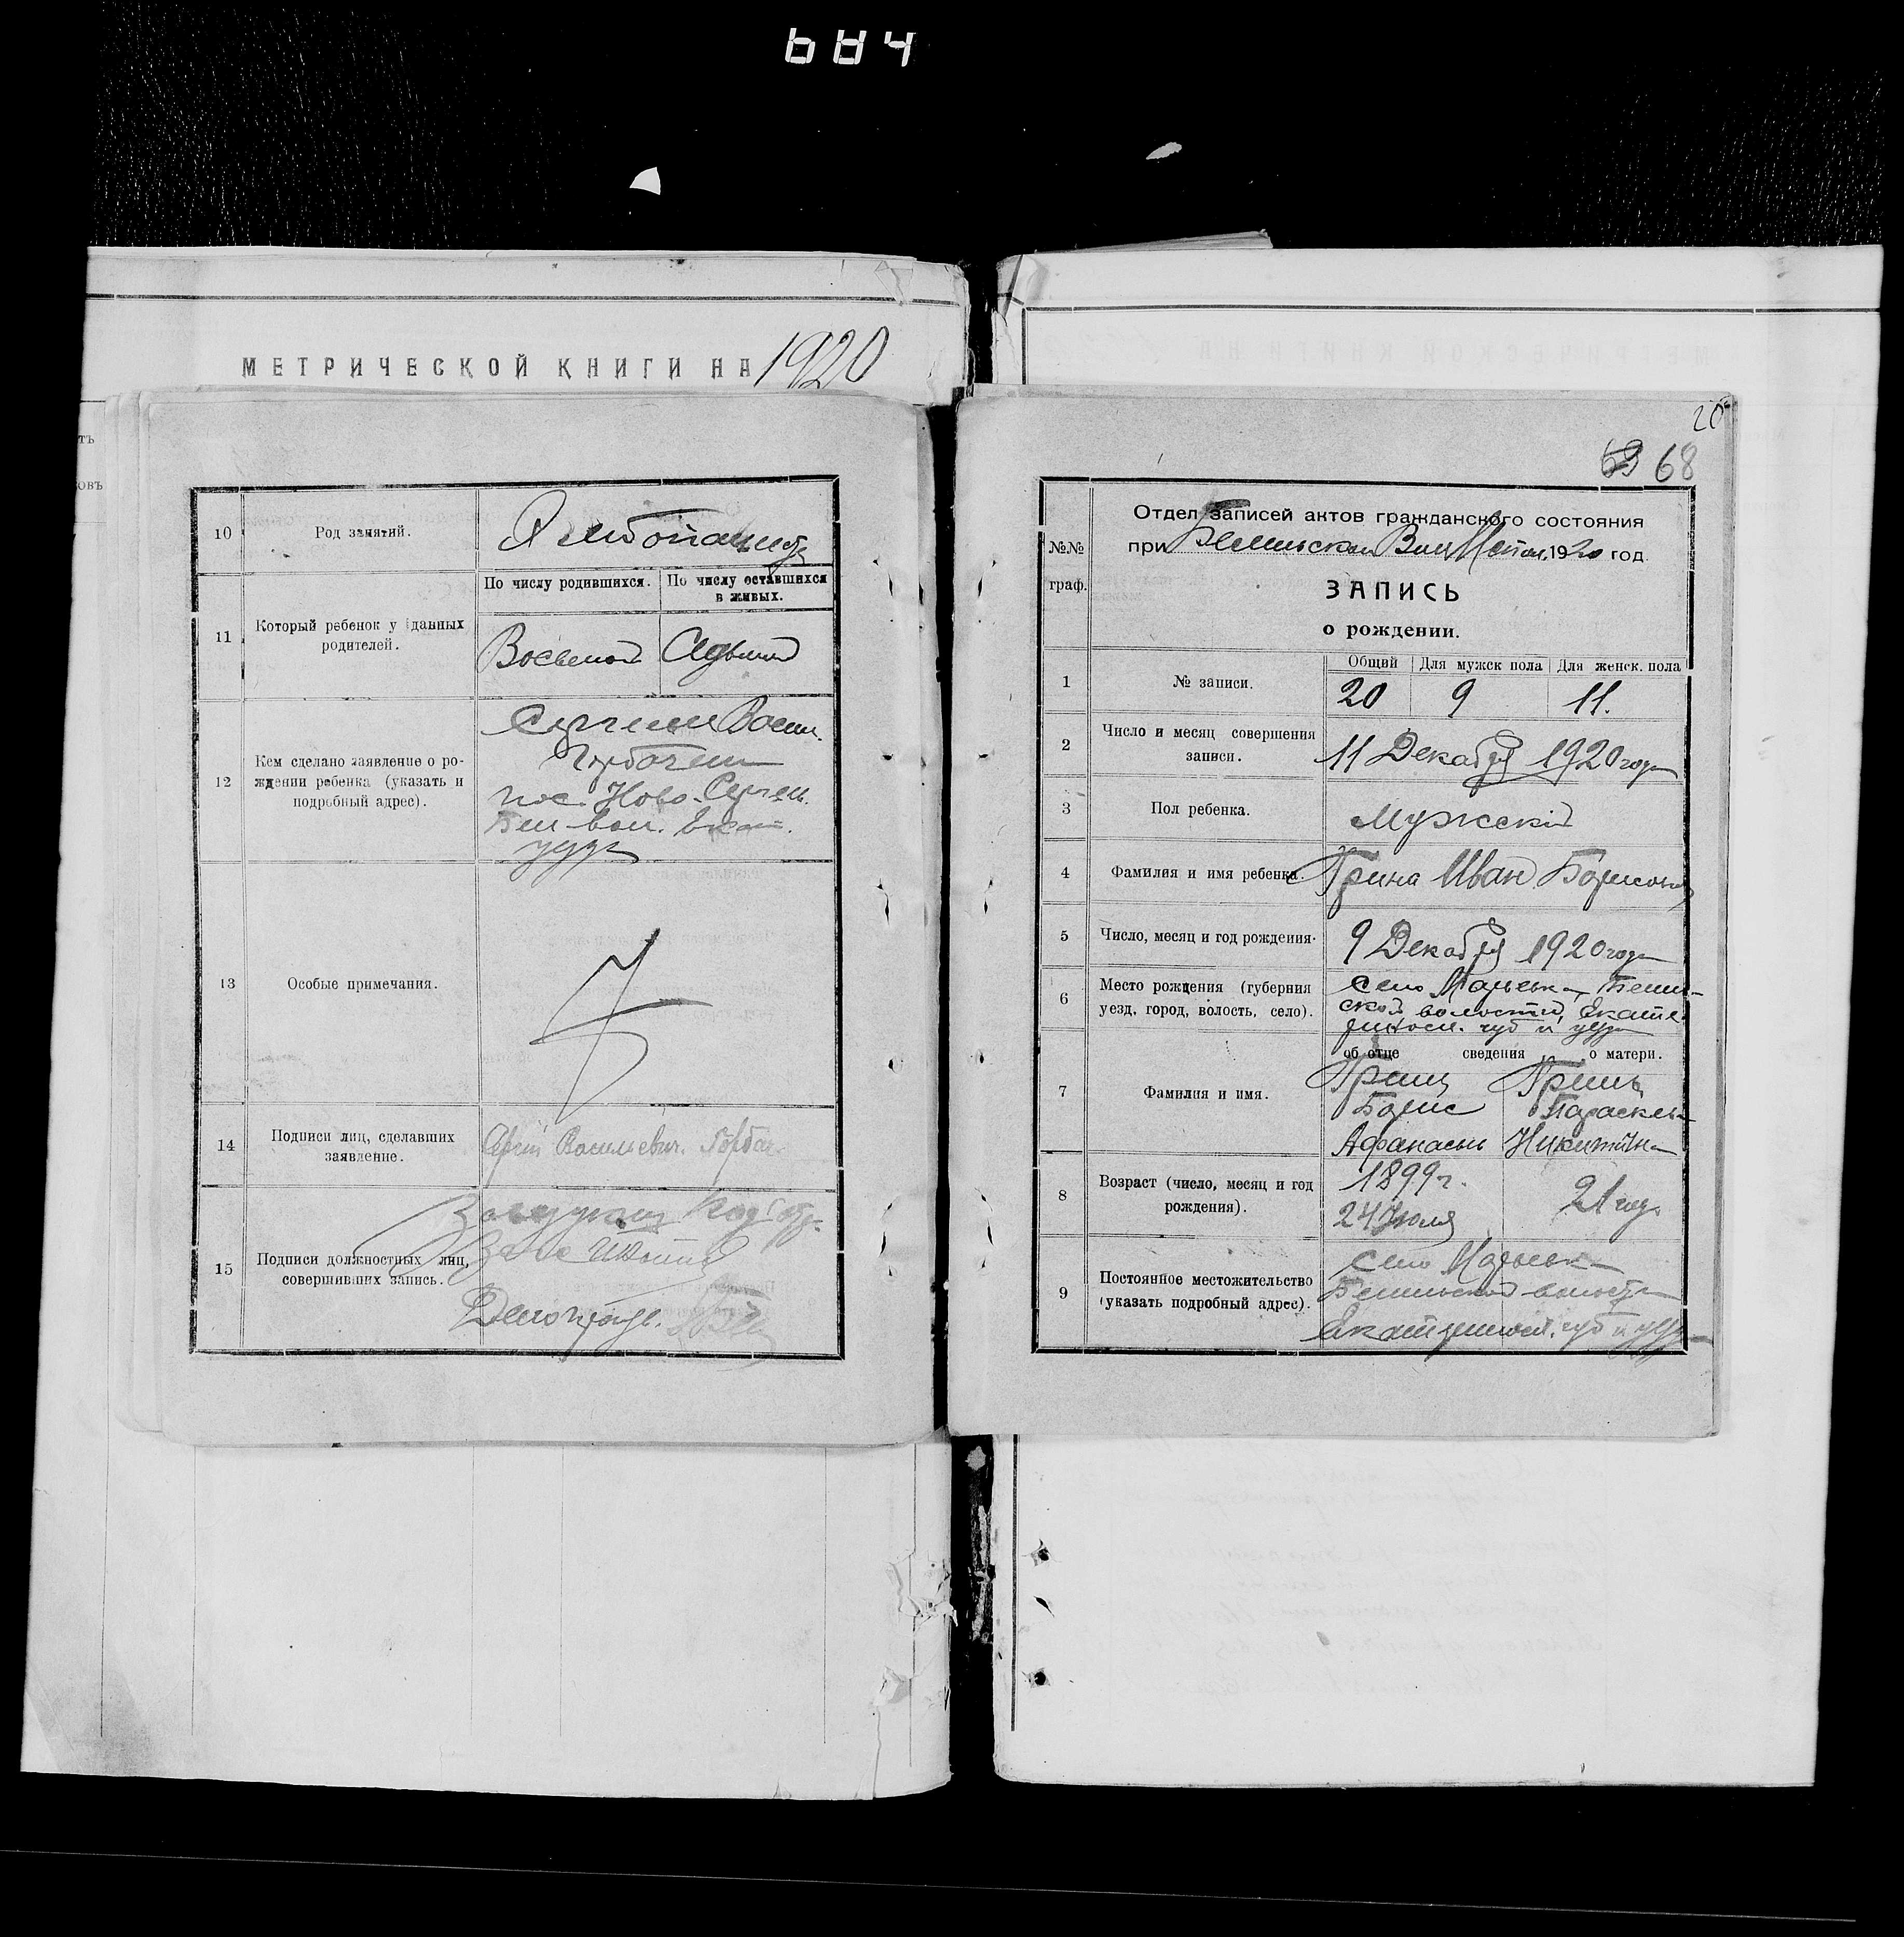 684
МЕТРИЧЕСКОЙ КНИГИ НА 1920
тъ
овъ
10 Род занятий. Хлебопашество
По числу родившихся. По числу оставшихся в живых.
11 Который ребенок у данных родителей. Восьмой
12 Кем сделано заявление о рождении ребенка (указать и подробный адрес).
пос. Ново-
уезда
13 Особые примечания.
14 Подписи лиц, сделавших заявление. Васильевич. Горбач.
15 Подписи должностных лиц, совершивших запись.
Делопроизв.
20
69 68
№№ граф.
Отдел записей актов гражданского состояния
при 1920 год.
ЗАПИСЬ
о рождении.
Общий Для мужск пола Для женск. пола
1 № записи. 20 9 11.
2 Число и месяц совершения записи. 11 Декабря 1920 года
3 Пол ребенка. Мужский
4 Фамилия и имя ребенка. Грина Иван Борисович
5 Число, месяц и год рождения. 9 Декабря 1920 года
6 Место рождения (губерния уезд, город, волость, село). село
ской волости, Екате
риносл. губ и уезда
об отце сведения о матери.
7 Фамилия и имя. Гринь Гринь
Борис Параскева
Афанасьев Никитична
8 Возраст (число, месяц и год рождения). 1899 г. 21 год.
24 Июля
9 Постоянное местожительство (указать подробный адрес). село
волости
Екатериносл. губ и уезда